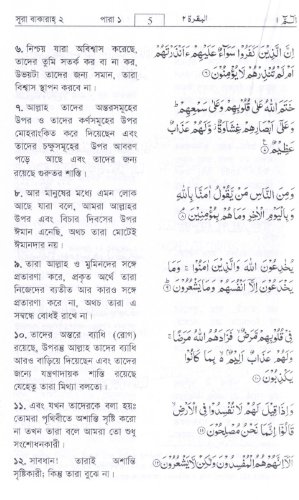 সূরা বাকারাহ্ ২ পারা ১ 5 البقرة ٢ الٓمّٓ ١
৬. নিশ্চয় যারা অবিশ্বাস করেছে,
তাদের তুমি সতর্ক কর বা না কর,
উভয়টা তাদের জন্য সমান, তারা
বিশ্বাস স্থাপন করবে না।
إِنَّ الَّذِينَ كَفَرُوا سَوَاءٌ عَلَيْهِمْ ءَأَنْذَرْتَهُمْ
أَمْ لَمْ تُنْذِرْهُمْ لَا يُؤْمِنُونَ ۝٦
৭. আল্লাহ তাদের অন্তরসমূহের
উপর ও তাদের কর্ণসমূহের উপর
মোহরাংকিত করে দিয়েছেন এবং
তাদের চক্ষুসমূহের উপর আবরণ
পড়ে আছে এবং তাদের জন্য
রয়েছে গুরুতর শাস্তি।
خَتَمَ اللَّهُ عَلَىٰ قُلُوبِهِمْ وَعَلَىٰ سَمْعِهِمْ ۖ
وَعَلَىٰ أَبْصَارِهِمْ غِشَاوَةٌ ۖ وَلَهُمْ عَذَابٌ
عَظِيمٌ ۝٧
৮. আর মানুষের মধ্যে এমন লোক
আছে যারা বলে, আমরা আল্লাহর
উপর এবং বিচার দিবসের উপর
ঈমান এনেছি, অথচ তারা মোটেই
ঈমানদার নয়।
وَمِنَ النَّاسِ مَنْ يَقُولُ آمَنَّا بِاللَّهِ
وَبِالْيَوْمِ الْآخِرِ وَمَا هُمْ بِمُؤْمِنِينَ ۝٨
৯. তারা আল্লাহ ও মুমিনদের সঙ্গে
প্রতারণা করে, প্রকৃত অর্থে তারা
নিজেদের ব্যতীত আর কারও সঙ্গে
প্রতারণা করে না, অথচ তারা এ
সম্বন্ধে বোধই রাখে না।
يُخَادِعُونَ اللَّهَ وَالَّذِينَ آمَنُوا ۚ وَمَا
يَخْدَعُونَ إِلَّا أَنْفُسَهُمْ وَمَا يَشْعُرُونَ ۝٩
১০. তাদের অন্তরে ব্যাধি (রোগ)
রয়েছে, উপরন্তু আল্লাহ তাদের ব্যাধি
আরও বাড়িয়ে দিয়েছেন এবং তাদের
জন্যে যন্ত্রণাদায়ক শাস্তি রয়েছে
যেহেতু তারা মিথ্যা বলতো।
فِي قُلُوبِهِمْ مَرَضٌ ۙ فَزَادَهُمُ اللَّهُ مَرَضًا ۚ
وَلَهُمْ عَذَابٌ أَلِيمٌ ۙ بِمَا كَانُوا
يَكْذِبُونَ ۝١٠
১১. এবং যখন তাদেরকে বলা হয়ঃ
তোমরা পৃথিবীতে অশান্তি সৃষ্টি করো
না তখন তারা বলে আমরা তো শুধু
সংশোধনকারী।
وَإِذَا قِيلَ لَهُمْ لَا تُفْسِدُوا فِي الْأَرْضِ ۙ
قَالُوا إِنَّمَا نَحْنُ مُصْلِحُونَ ۝١١
১২. সাবধান! তারাই অশান্তি
সৃষ্টিকারী; কিন্তু তারা বুঝে না।
أَلَا إِنَّهُمْ هُمُ الْمُفْسِدُونَ وَلَٰكِنْ لَا يَشْعُرُونَ ۝١٢